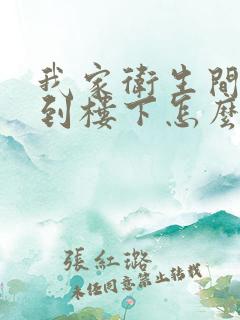 我家衛生間
到樓下怎麼
張紅璐
未经同意禁止转载